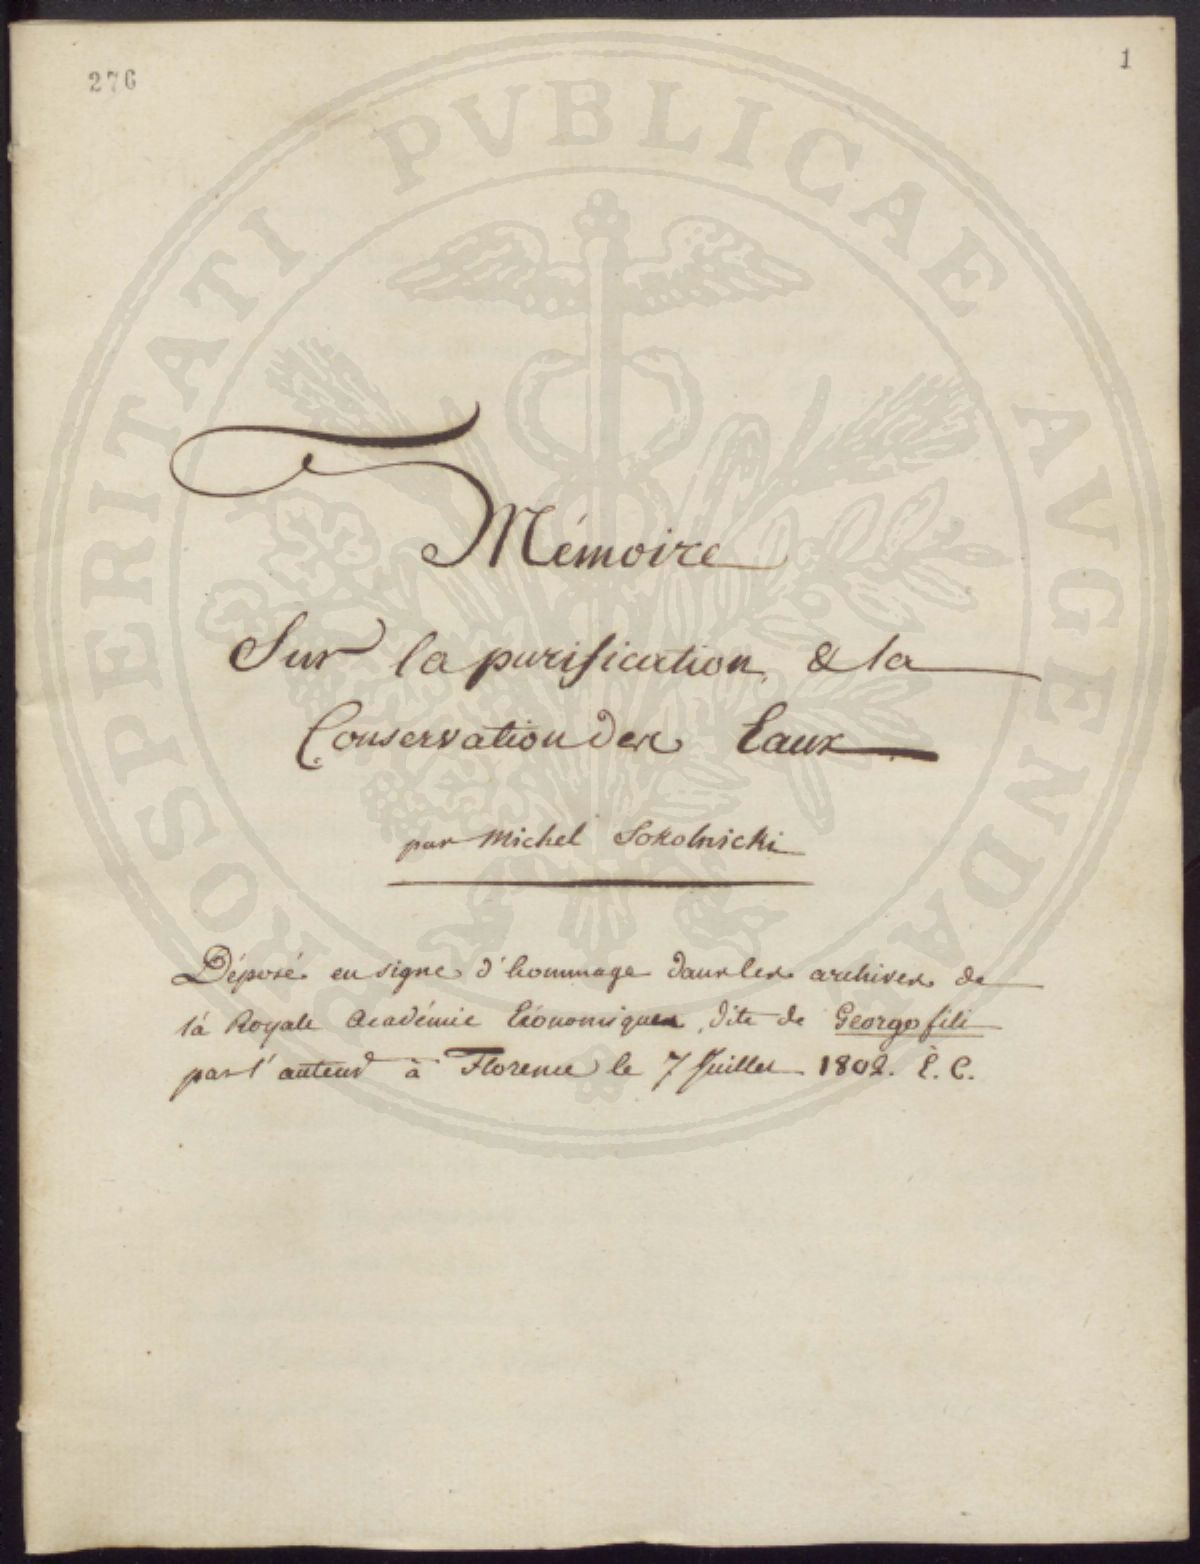 276
1
PROSPERITATI PVBLICAE AVGENDAE
Mémoire
Sur la purification, & la
Conservation des Eaux
par Michel Sokolnicki
Déposé en signe d'hommage dans les archives de
la Royale Académie Économique, dite de Georgofili
par l'auteur à Florence le 7 Juillet 1802. È. C.